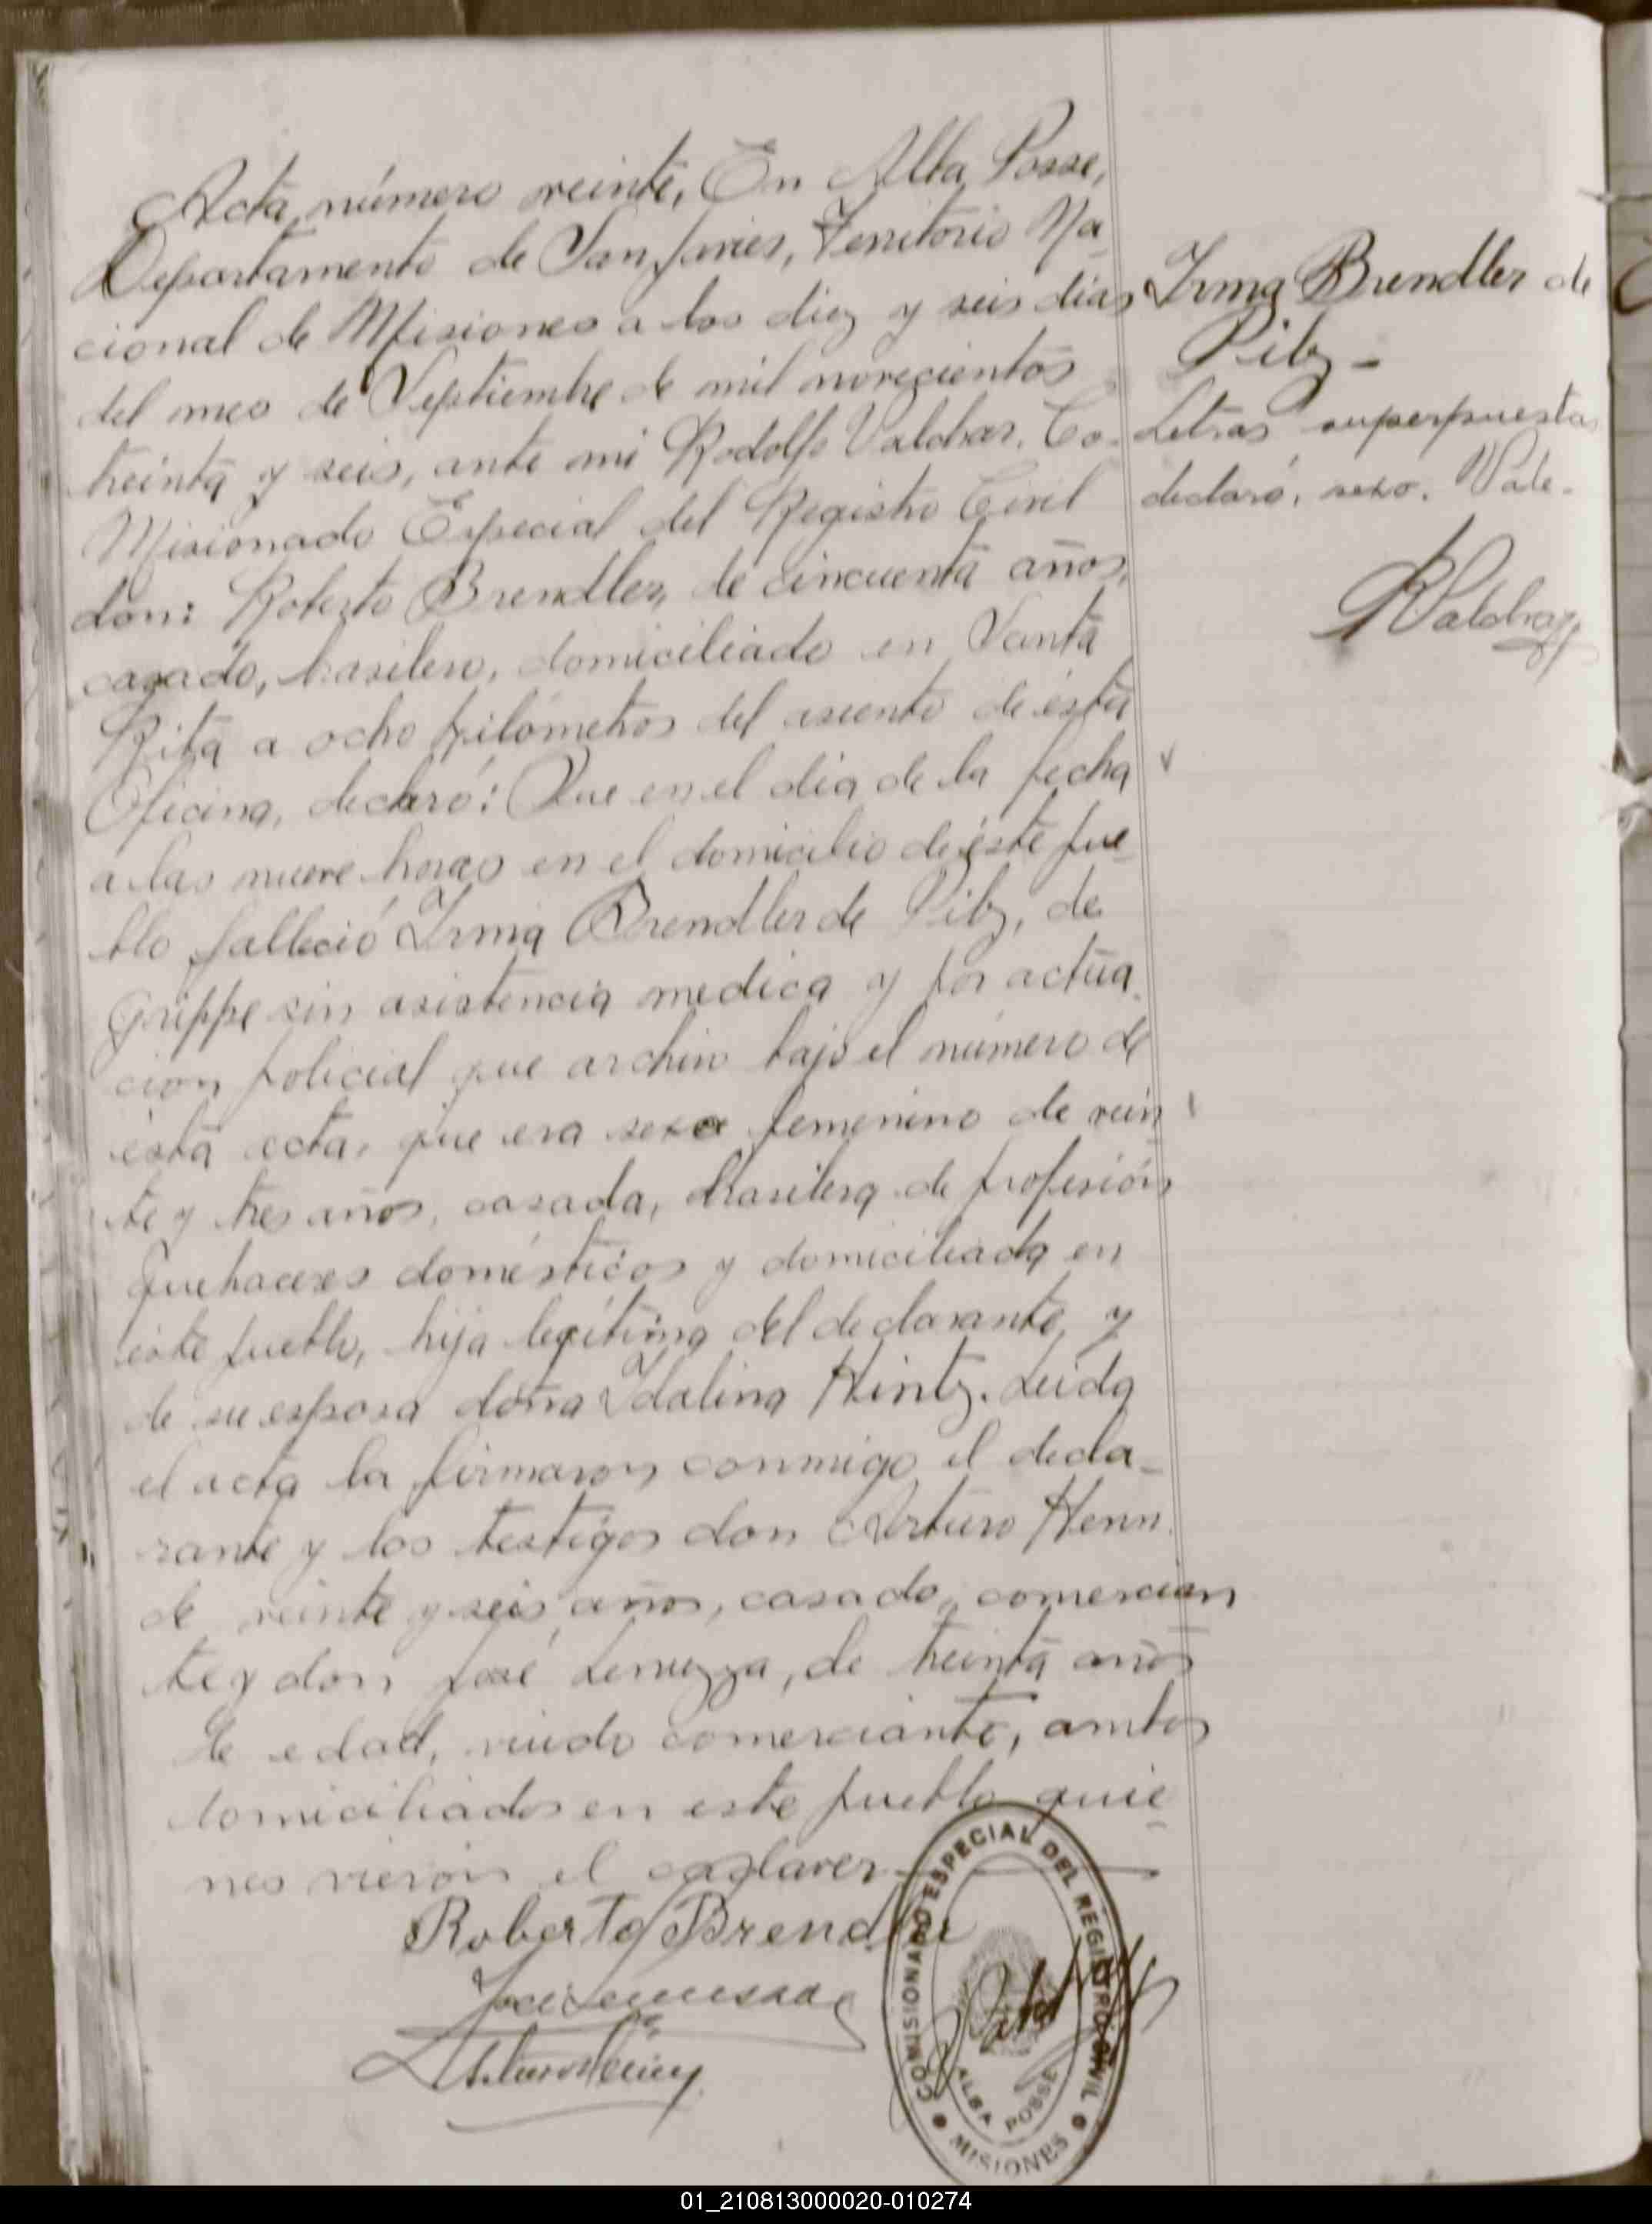 Acta número veinte, En Alba Posse,
Departamento de San Javier, Territorio Na-
cional de Misiones a los diez y seis dias
del mes de Septiembre de mil novecientos
treinta y seis, ante mi Rodolfo Valdhar. Co-
Misionado Especial del Registro Civil
don: Roberto Brendler, de cincuenta años,
casado, brasilero, domiciliado en Santa
Rita a ocho kilómetros del asiento de ésta
Oficina, declaró: Que en el dia de la fecha
a las nueve horas en el domicilio de éste pue-
blo falleció Irma Brendler de Pilz, de
grippe sin asistencia medica y por actua-
cion policial que archivo bajo el número de
ésta acta, que era sexo femenino de vein
te y tres años, casada, brasilera de profesión
quehaceres domésticos y domiciliada en
éste pueblo, hija legítima del declarante, y
de su esposa doña Idalina Hintz. Leida
el acta la firmaron conmigo el decla-
rante y los testigos don Arturo Henn
de veinte y seis años, casado, comercian
te y don José Lenuzza, de treinta años
de edad, viudo comerciante, ambos
domiciliados en este pueblo quie-
nes vieron el cadaver
Irma Brendler de
Pilz -
Letras superpuestas
declaró, sexo. Vale.
Roberto Brendler
COMISIONADO ESPECIAL DEL REGISTRO CIVIL
ALBA POSSE
MISIONES
01_210813000020-010274